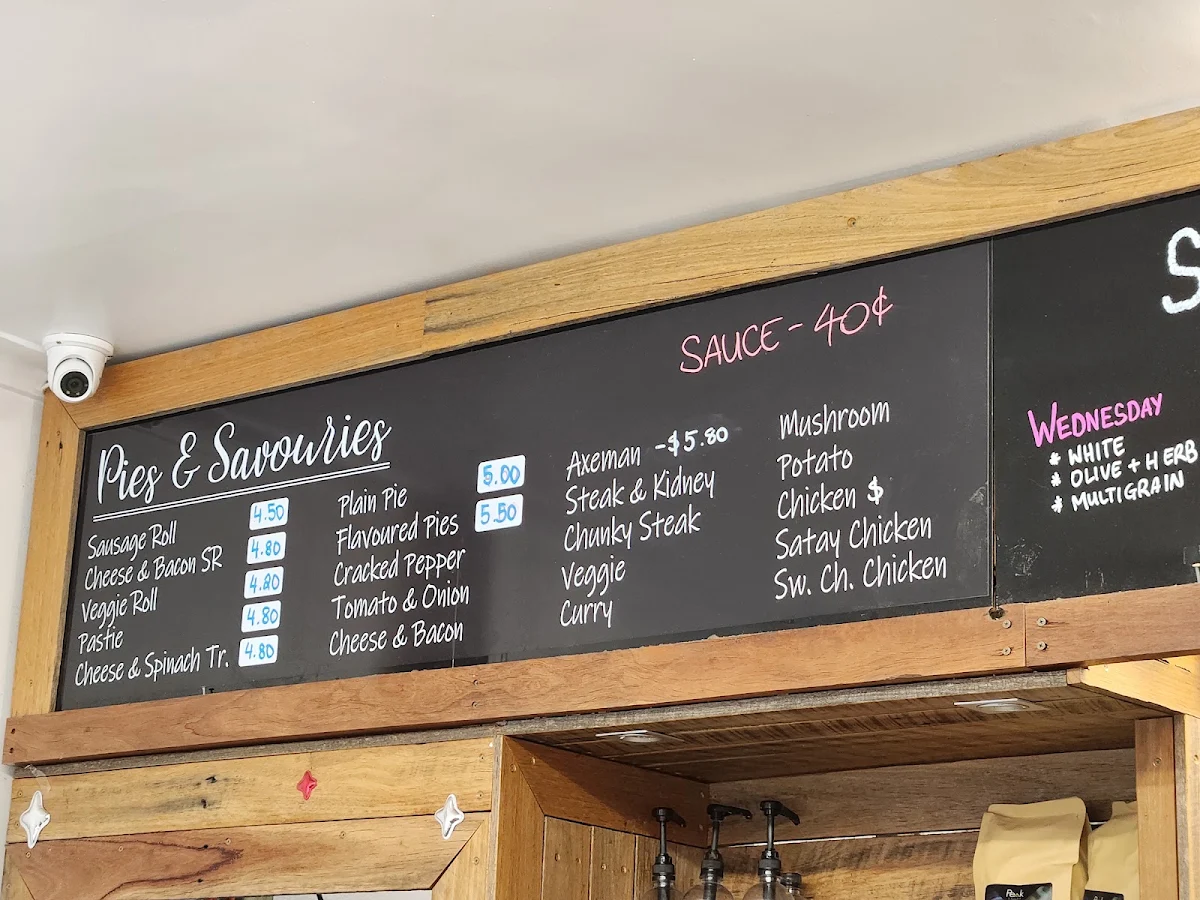 Pies & Savouries
Sausage Roll 4.50
Cheese & Bacon SR 4.80
Veggie Roll 4.20
Pastie 4.80
Cheese & Spinach Tr. 4.80
Plain Pie 5.00
Flavoured Pies 5.50
Cracked Pepper
Tomato & Onion
Cheese & Bacon
SAUCE - 40¢
Axeman - $5.80
Steak & Kidney
Chunky Steak
Veggie
Curry
Mushroom
Potato
Chicken $
Satay Chicken
Sw. Ch. Chicken
S
WEDNESDAY
* WHITE
* OLIVE + HERB
* MULTIGRAIN
Peak